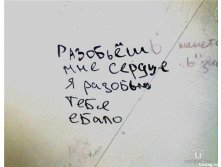 Разобьёшь
мне сердце
я разобью
тебе
ебало